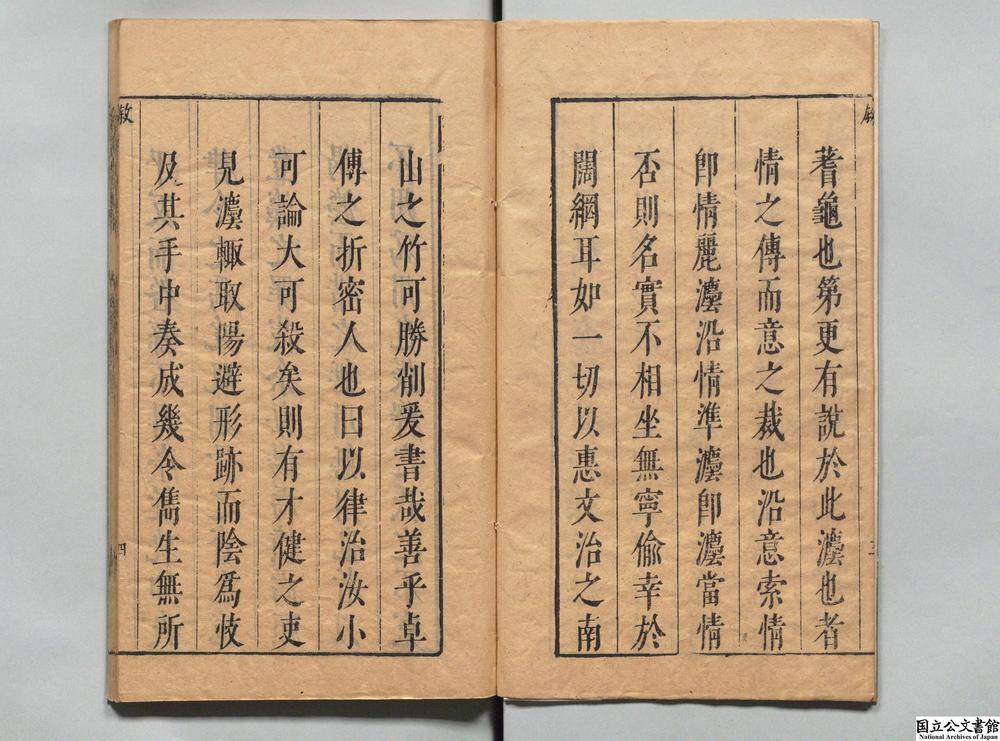 敘
蓍龜也第更有說於此灋也者
情之傳而意之裁也沿意索情
卽情麗灋沿情準灋卽灋當情
否則名實不相坐無寧偷幸於
闊綱耳如一切以惠文治之南
三
山之竹可勝削爰書哉善乎卓
傅之折密人也曰以律治汝小
可論大可殺矣則有才健之吏
見灋輙取陽避形跡而陰爲忮
及其手中奏成幾令雋生無所
敘
四
国立公文書館
National Archives of Japan